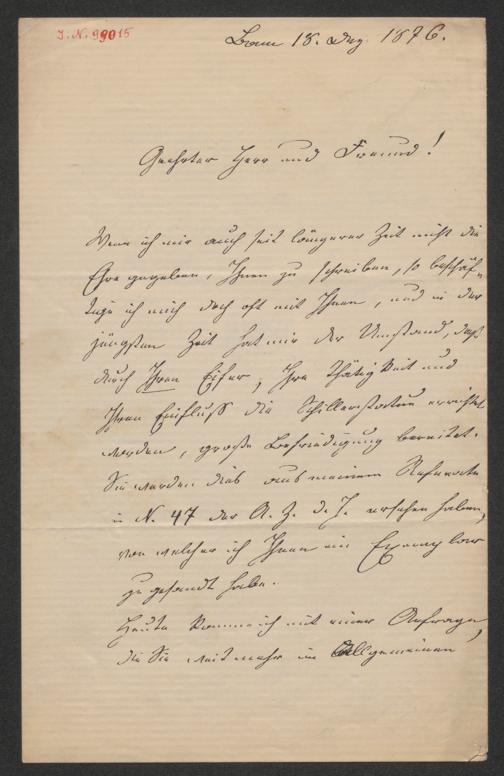 J. N. 99015
Bonn 18. Dez. 1876.
Geehrter Herr und Freund!
Wenn ich mir auch seit längerer Zeit nicht die
Ehre gegeben, Ihnen zu schreiben, so beschäf-
tige ich mich doch oft mit Ihnen, und in der
jüngsten Zeit hat mir der Umstand, daß
durch Ihren Eifer, Ihre Thätigkeit und
Ihren Einfluß die Schillerstatue errichtet
worden, große Befriedigung bereitet.
Sie werden dies aus meinem Referate
in N. 47 der A. Z. d. J. ersehen haben,
von welcher ich Ihnen ein Exemplar
zu gesandt habe.
Heute komme ich mit einer Anfrage,
die Sie weit mehr im Allgemeinen